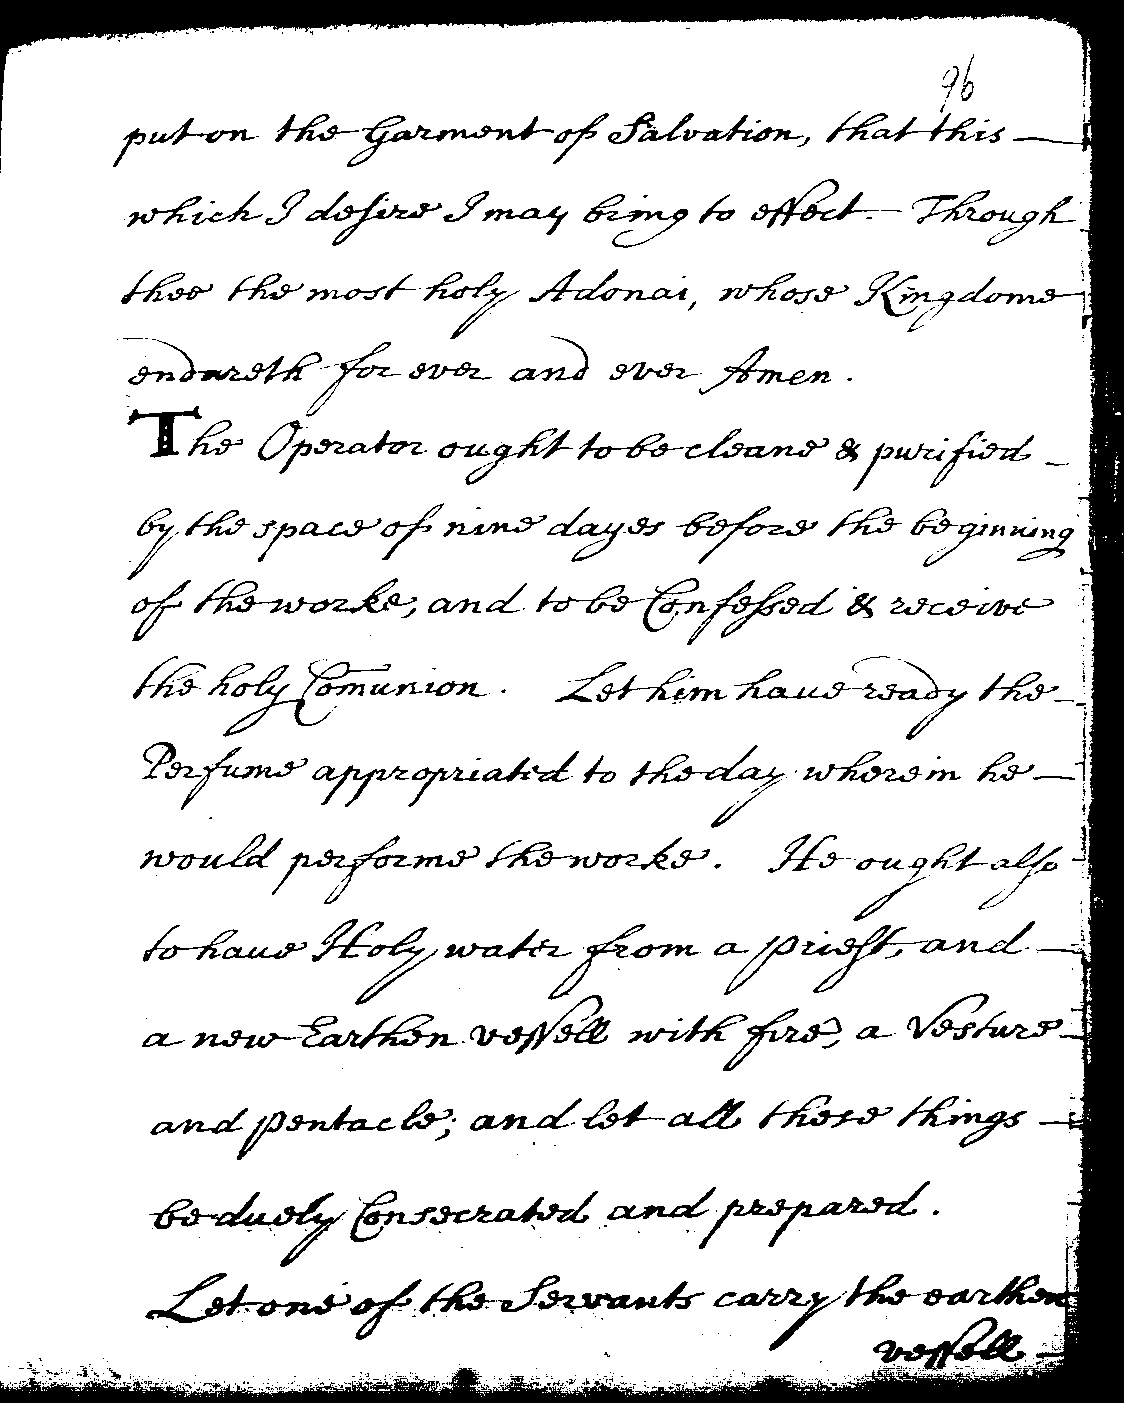 96
put on the Garment of Salvation, that this
which I desire I may bring to effect. Through
thee the most holy Adonai, whose Kingdome
endureth for ever and ever Amen.
The Operator ought to be cleane & purified
by the space of nine dayes before the beginning
of the worke, and to be Confessed & receive
the holy Comunion. Let him haue ready the
Perfume appropriated to the day wherein he
would performe the worke. He ought also
to haue Holy water from a priest, and
a new Earthen vessell with fire, a Vesture
and pentacle; and let all these things
be duely Consecrated and prepared.
Let one of the Servants carry the earthen
vessell